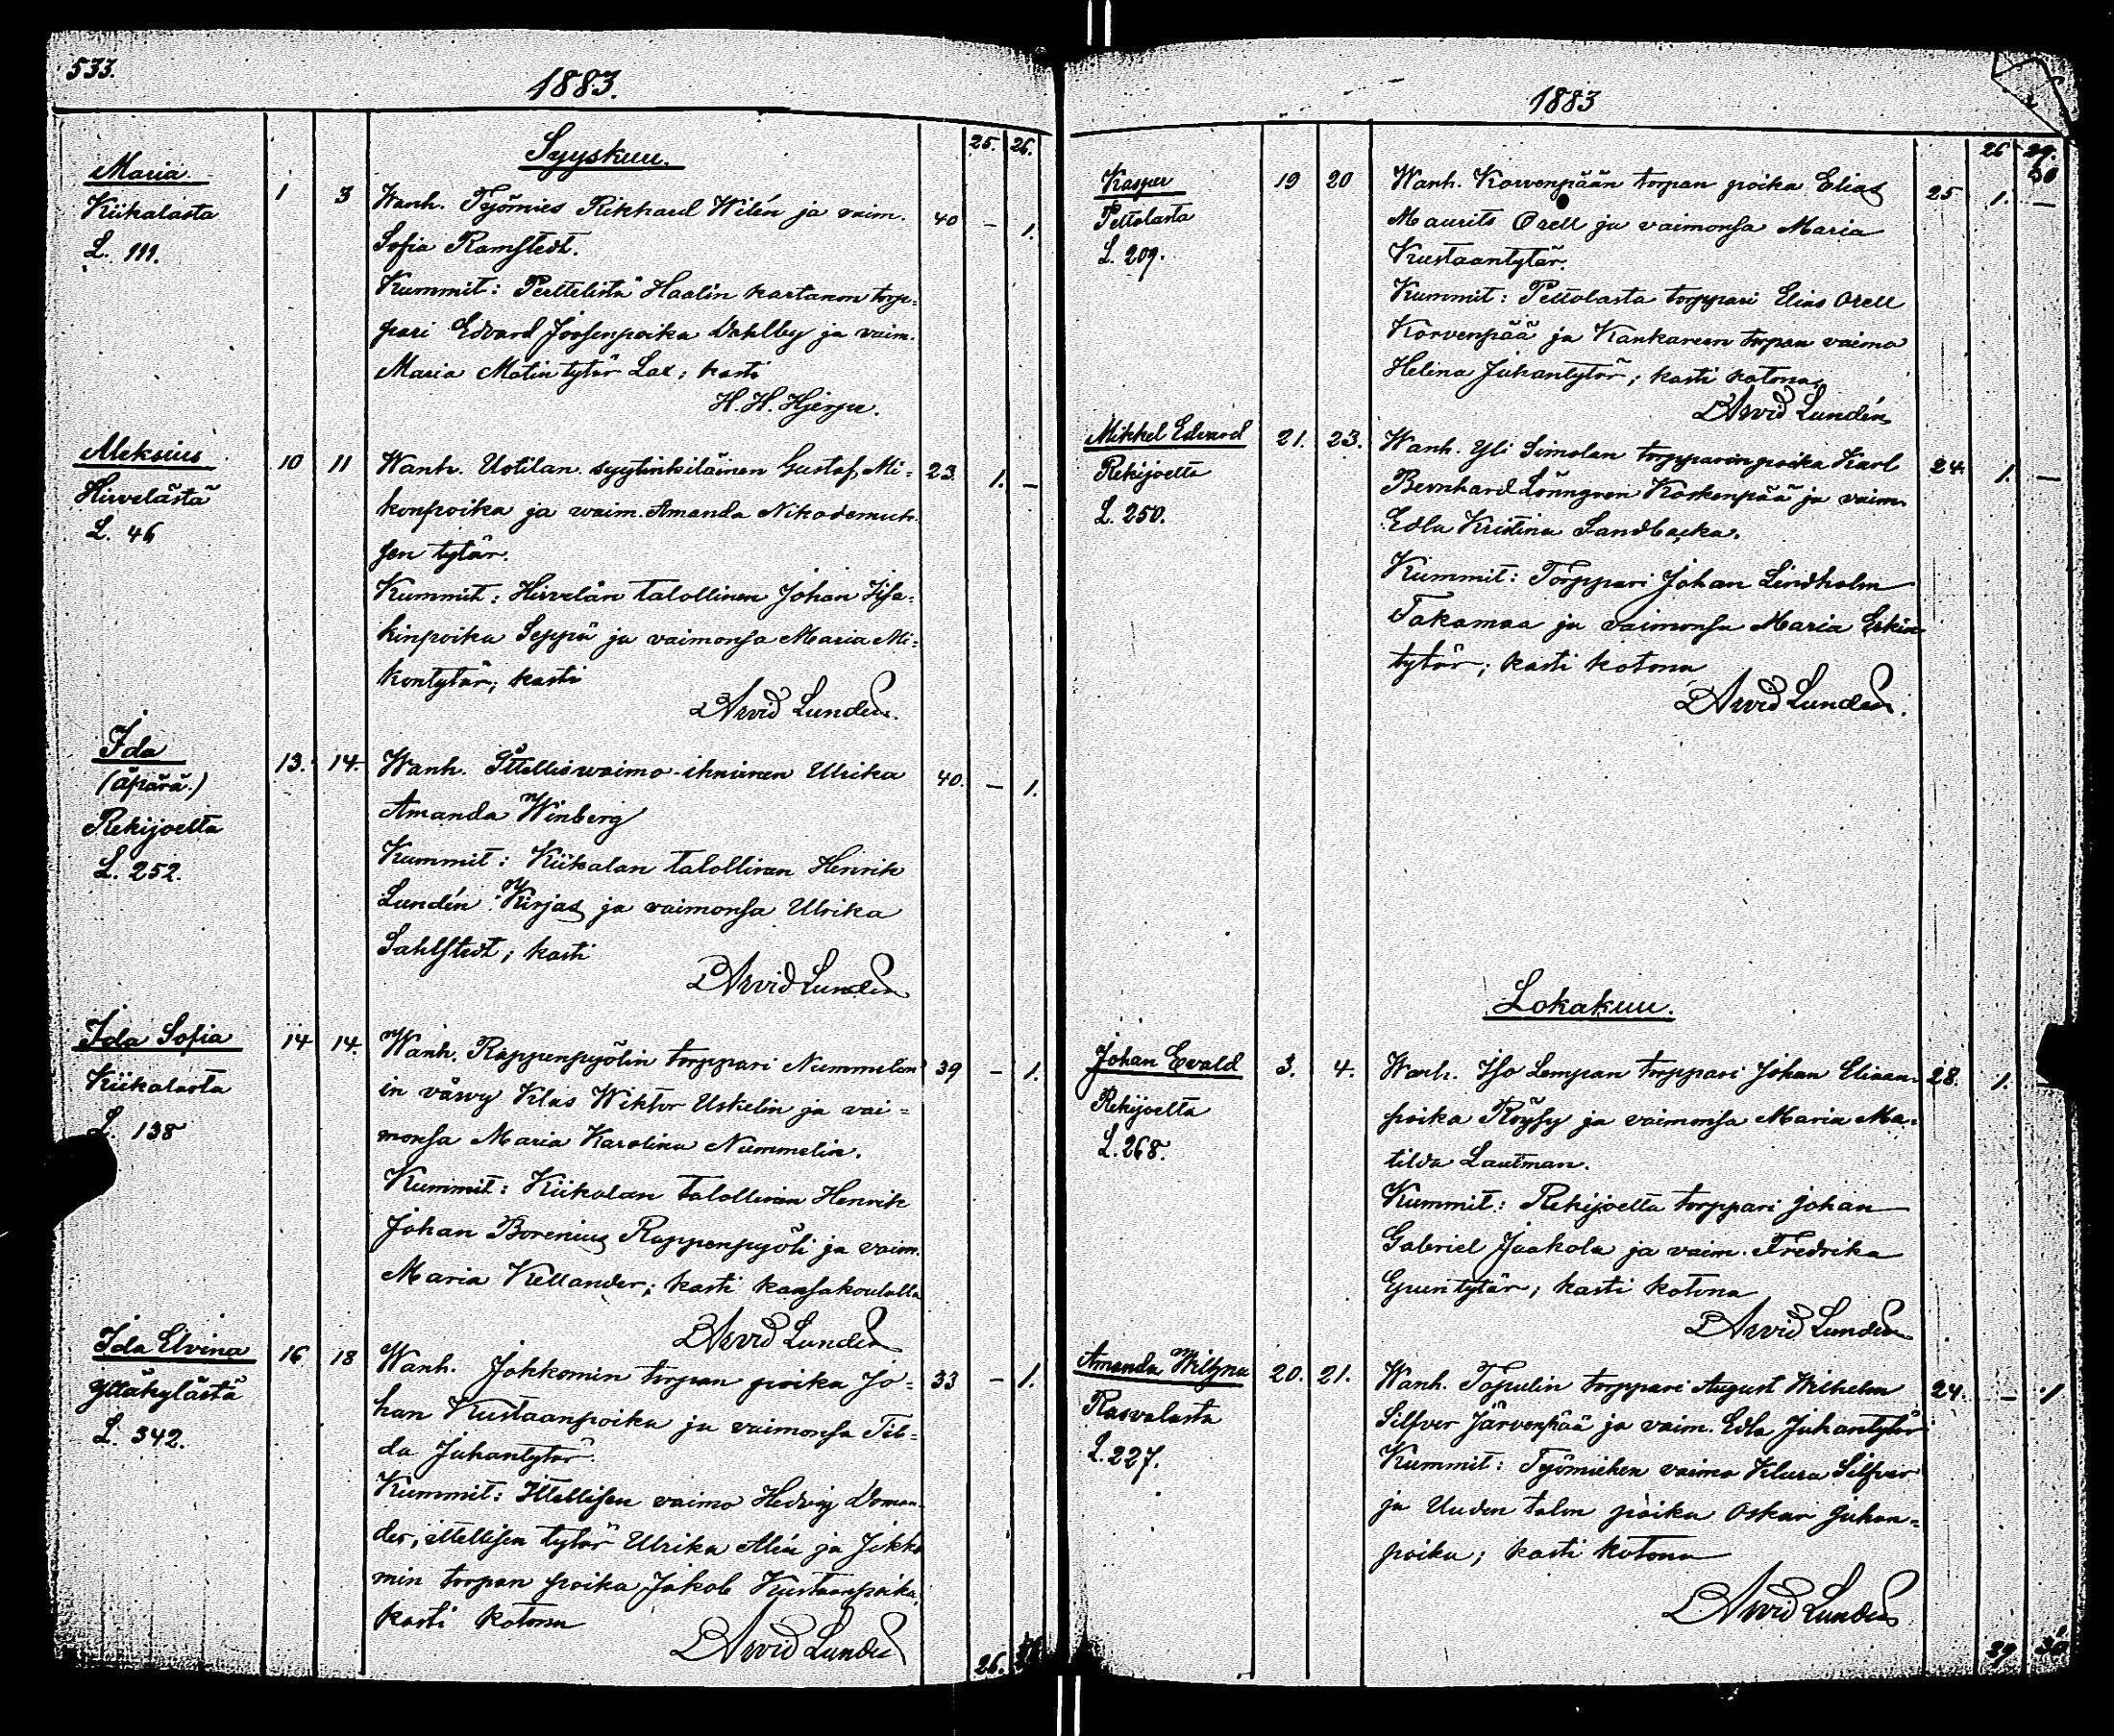 533.
1883.
25. 26.
Syyskuu.
Maria
Kiikalasta
L. 111.
1 3
Wanh. Työmies Rikhard Wilén ja vaim. 40 — 1.
Sofia Ramstedt.
Kummit: Perttelistä Haalin kartanon torp-
pari Edvard Joosenpoika Dahlby ja vaim.
Maria Matintytär Lax; kasti
H. H. Hjerpe.
Aleksius
Hirvelästä
L. 46
10 11
Wanh. Uotilan syytinkiläinen Gustaf Mi- 23. 1. —
konpoika ja waim. Amanda Nikodemuk-
sen tytär.
Kummit: Hirvelän talollinen Johan Iisa-
kinpoika Seppä ja vaimonsa Maria Mi-
kontytär; kasti
Arvid Lundén.
Ida
(äpärä.)
Rekijoelta
L. 252.
13. 14.
Wanh. Ittellisvaimo-ihminen Ulrika 40. — 1.
Amanda Winberg
Kummit: Kiikalan talollinen Henrik
Lundén Kirjas ja vaimonsa Ulrika
Sahlstedt; kasti
Arvid Lundén
Ida Sofia
Kiikalasta
L. 138
14 14.
Wanh. Rappenpyölin torppari Nummelin 39 — 1.
in vävy Klas Wiktor Uskelin ja vai-
monsa Maria Karolina Nummelin.
Kummit: Kiikalan talollinen Henrik
Johan Borenius Rappenpyöli ja vaim.
Maria Kellander; kasti kansakoululla
Arvid Lundén
Ida Elvina
Yltäkylästä
L. 342.
16 18
Wanh. Jokkomin torpan poika Jo- 33 — 1.
han Kustaanpoika ja vaimonsa Til-
da Juhantytär.
Kummit: Ittellisen vaimo Hedvig
ittellisen tytär Ulrika Alén ja Jokko
min torpan poika Jakob Kustaanpoika,
kasti kotona
Arvid Lundén
26.
1883
26
30
Kasper
Peltolasta
L. 209.
19 20
Wanh. Korvenpään torpan poika Elias 25 1. —
Maurits Orell ja vaimonsa Maria
Kustaantytär.
Kummit: Peltolasta torppari Elias Orell
Korvenpää ja Kankareen torpan vaimo
Helena Juhantytär; kasti kotona
Arvid Lundén
Mikkel Edvard
Rekijoelta
L. 250.
21. 23.
Wanh. Yli Simolan torpparin poika Karl 24 1. —
Bernhard Lönngren Koskenpää ja vaim.
Edla Kristina Sandbacka.
Kummit: Torppari Johan Lindholm
Takamaa ja vaimonsa Maria Erkin
tytär; kasti kotona
Arvid Lundén.
Lokakuu.
Johan Evald
Rekijoelta
L. 268.
3. 4.
Wanh. Iso Lempan torppari Johan Eliaan- 28. 1.
poika Röysy ja vaimonsa Maria Ma-
tilda Lautman.
Kummit: Rekijoelta torppari Johan
Gabriel Jaakola ja vaim. Fredrika
tytär; kasti kotona
Arvid Lundén
Amanda Wilhelmina
Rasvalasta
L. 227.
20. 21.
Wanh. Topulin torppari August Wilhelm 24. — 1
Silfver Järvenpää ja vaim. Edla Juhantytär
Kummit: Työmiehen vaimo Klara Silfver
ja Uuden talon poika Oskar Juhan-
poika; kasti kotona
Arvid Lundén
29